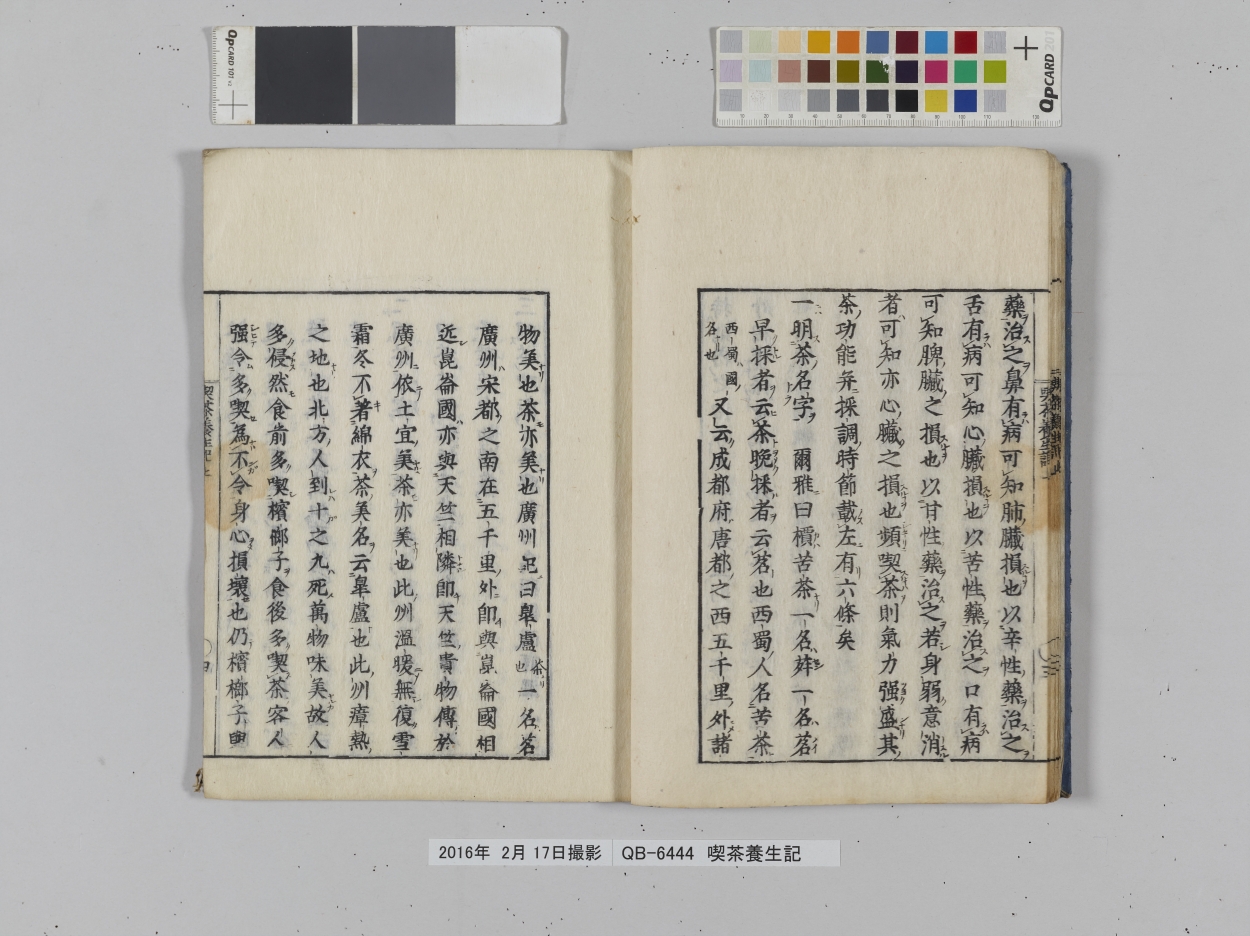 藥治之鼻有病可知肺臓損也以辛性藥治之
舌有病可知心臓損也以苦性藥治之口有病
可知脾臓之損也以甘性藥治之若身弱意消
者可知亦心臓之損也頻喫茶則氣力强盛其
茶功能并採調時節載左有六條矣
一明茶名字 爾雅曰檟苦茶一名荈一名茗
早採者云茶晩採者云茗也西蜀人名苦茶
西蜀國
名也
又云成都府唐都之西五千里外諸
物美也茶亦美也廣州記曰皐盧茶也一名茗
廣州宋都之南在五千里外即與崑崙國相
近崑崙國亦與天竺相隣即天竺貴物傳於
廣州依土宜美茶亦美也此州溫暖無復雪
霜冬不著綿衣茶美名云皐盧也此州瘴熱
之地也北方人到十之九死萬物味美故人
多侵然食前多喫檳榔子食後多喫茶客人
强令多喫為不令身心損壞也仍檳榔子與
喫茶養生記上
四
QPCARD 101 v2
QPCARD 201
2016年 2月 17日撮影 QB-6444 喫茶養生記